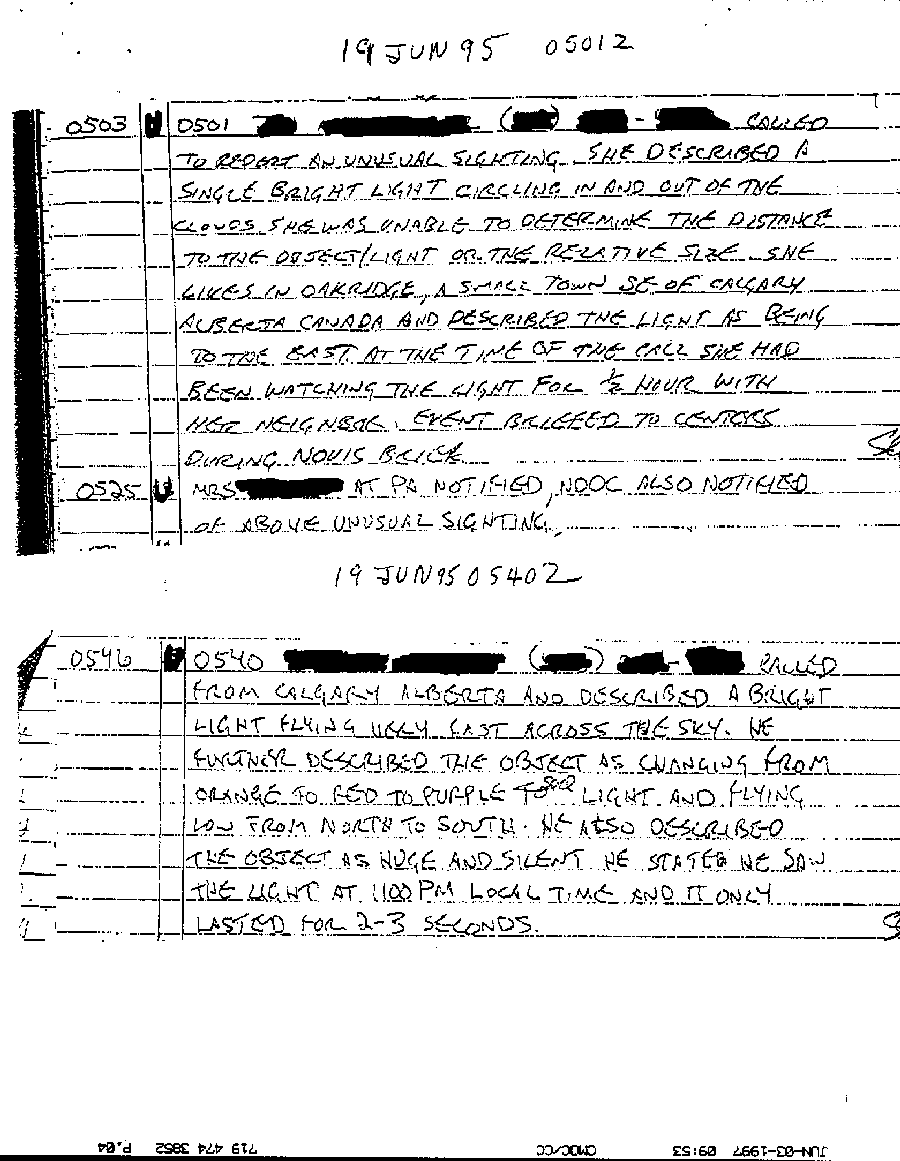 19 JUN 95 0501Z
0503 U 0501 ( ) - CALLED
TO REPORT AN UNUSUAL SIGHTING. SHE DESCRIBED A
SINGLE BRIGHT LIGHT CIRCLING IN AND OUT OF THE
CLOUDS. SHE WAS UNABLE TO DETERMINE THE DISTANCE
TO THE OBJECT/LIGHT OR THE RELATIVE SIZE. SHE
LIVES IN OAKRIDGE, A SMALL TOWN SE OF CALGARY
ALBERTA CANADA AND DESCRIBED THE LIGHT AS BEING
TO THE EAST. AT THE TIME OF THE CALL SHE HAD
BEEN WATCHING THE LIGHT FOR 1/2 HOUR WITH
HER NEIGHBOR. EVENT BRIEFED TO CENTERS
DURING NOVIS BRICK
0525 U MRS AT PA NOTIFIED, NDOC ALSO NOTIFIED
OF ABOVE UNUSUAL SIGHTING.
19 JUN 95 0540Z
0546 U 0540 ( ) - CALLED
FROM CALGARY ALBERTA AND DESCRIBED A BRIGHT
LIGHT FLYING VERY FAST ACROSS THE SKY. HE
FURTHER DESCRIBED THE OBJECT AS CHANGING FROM
ORANGE TO RED TO PURPLE TO LIGHT AND FLYING
LOW FROM NORTH TO SOUTH. HE ALSO DESCRIBED
THE OBJECT AS HUGE AND SILENT. HE STATED HE SAW
THE LIGHT AT 1100 PM LOCAL TIME AND IT ONLY
LASTED FOR 2-3 SECONDS.
JUN-03-1997 09:53 CMOC/CC 719 474 3852 P.04